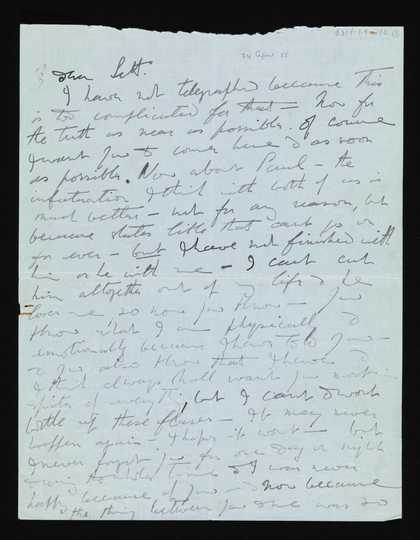 Dear Sebt.
I have not telegraphed because this
is too complicated for that – Now for
the truth as near as possible. Of course
I want you to come here & as soon
as possible. Now about Paul – the
infatuation I think with both of us is
much better – not for any reason, but
because states like that can't go on
for ever – but I have not finished with
him or he with me – I can't cut
him altogether out of my life & he
loves me so now you know – You
know what I am physically &
emotionally because I have told you –
& you also know that I have &
I shall always want you most in
spite of everything, but I can't & won't
bottle up these – It may never
happen again – I hope it won't – but
I never forget you for one day or night
I was never
happy because of you – & now because
the thing between you & me was so